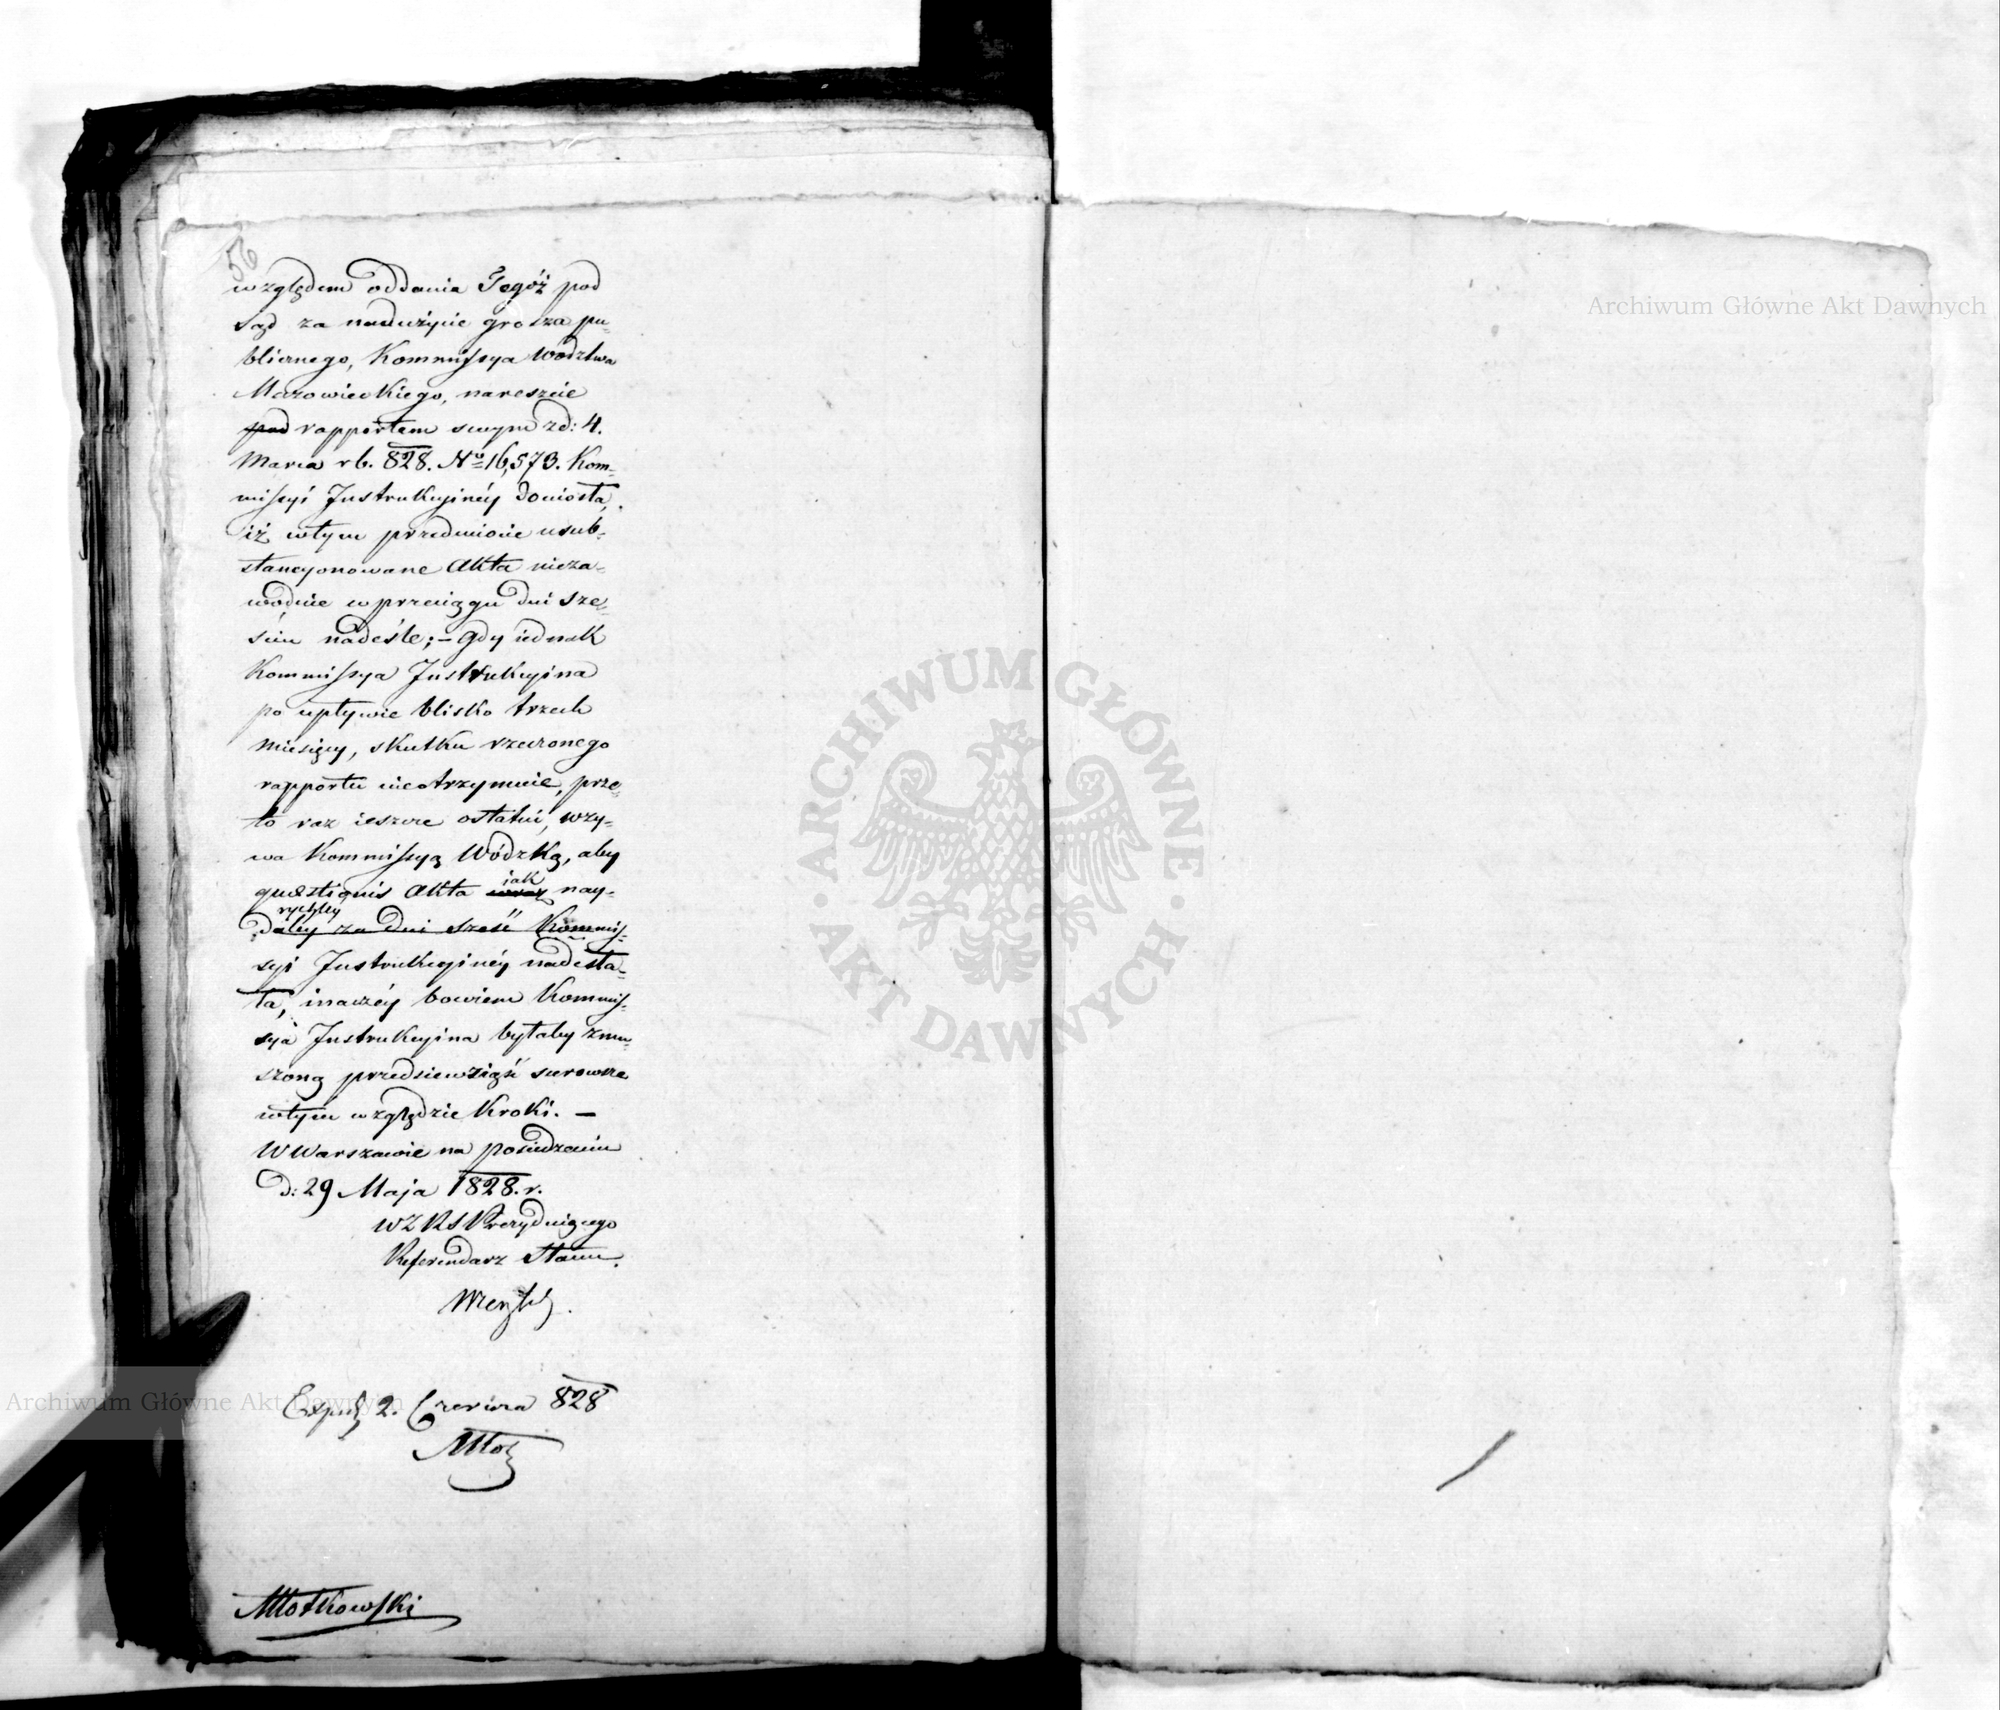 56
względem oddania Tegóż pod
sąd za nadużycie grosza pu-
blicznego, Kommissya Wództwa
Mazowieckiego, nareszcie
pod rapportem swym zd: 4.
Marca rb. 828. No 16,573. Kom-
missyi Instrukcyinéy doniosła,
iż wtym przedmiocie usub-
stancyonowane Akta nieza-
wodnie wprzeciągu dni sze-
ściu nadeśle; – Gdy iednak
Kommissya Instrukcyina
po upływie blisko trzech
Miesięcy, skutku rzeczonego
rapportu nieotrzymuie, prze-
to raz ieszcze ostatni, wzy-
wa Kommissyą Wódzką, aby
quæstionis Akta iak nay-
rychley
daley za dni sześć Kommis-
syi Instrukcyinéy nadesła-
ła, inaczéy bowiem Kommis-
syia Instrukcyina byłaby zmu-
szoną przedsiewziąść surowsze
wtym względzie Kroki. –
W Warszawie na posiedzeniu
d: 29 Maja 1828. r.
WZ RS Prezyduiącego
Referendarz Stanu.
2. Czerwca 828
Młotkowski
Archiwum Główne Akt Dawnych
Archiwum Główne Akt Dawnych
ARCHIWUM GŁÓWNE AKT DAWNYCH